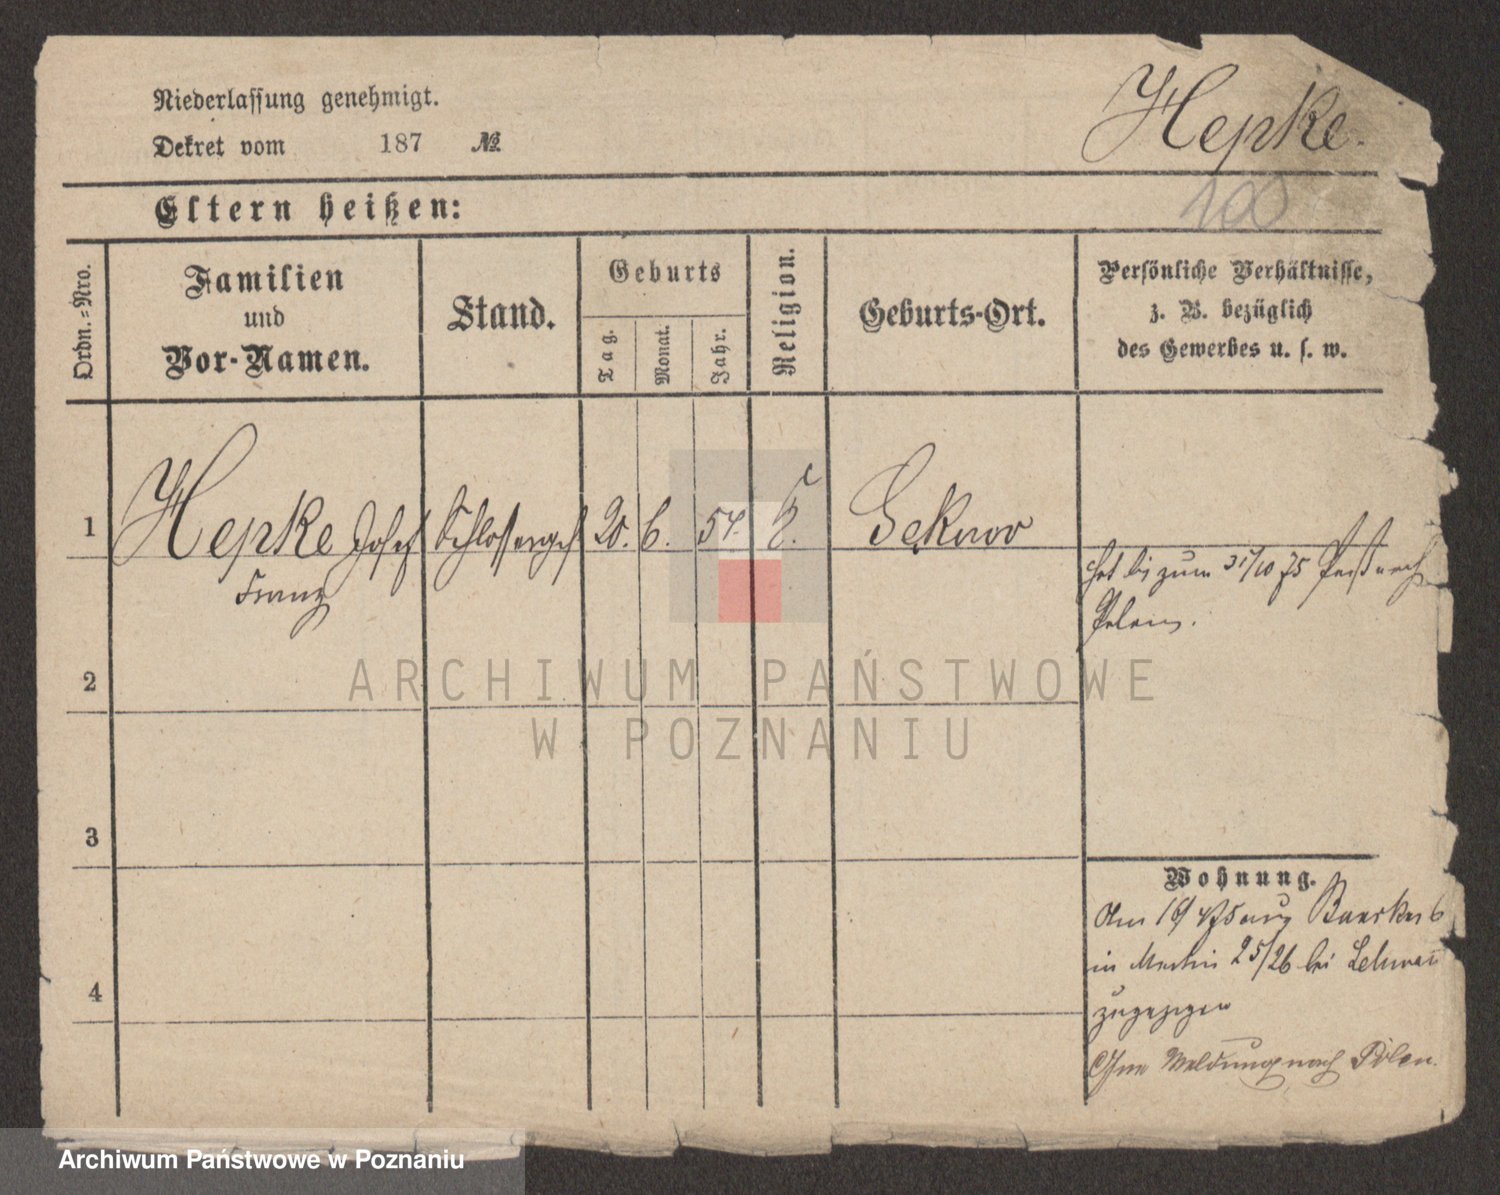 Niederlassung genehmigt.
Hepke.
Dekret vom 187 №
100
Eltern heißen:
Ordn.=Nro.
Familien
und
Vor-Namen.
Stand.
Geburts
Tag.
Monat.
Jahr.
Religion.
Geburts-Ort.
Persönliche Verhältnisse,
z. B. bezüglich
des Gewerbes u. s. w.
1
Hepke Josef
Franz
Schlosserges
20. 6. 54. K.
hat bis zum 31/10 75 Paß nach
Polen.
2
3
4
Wohnung.
Am 16/4 75 aus
in 25/26 bei
zugezogen
Ohne Meldung nach Polen.
ARCHIWUM PAŃSTWOWE
W POZNANIU
Archiwum Państwowe w Poznaniu